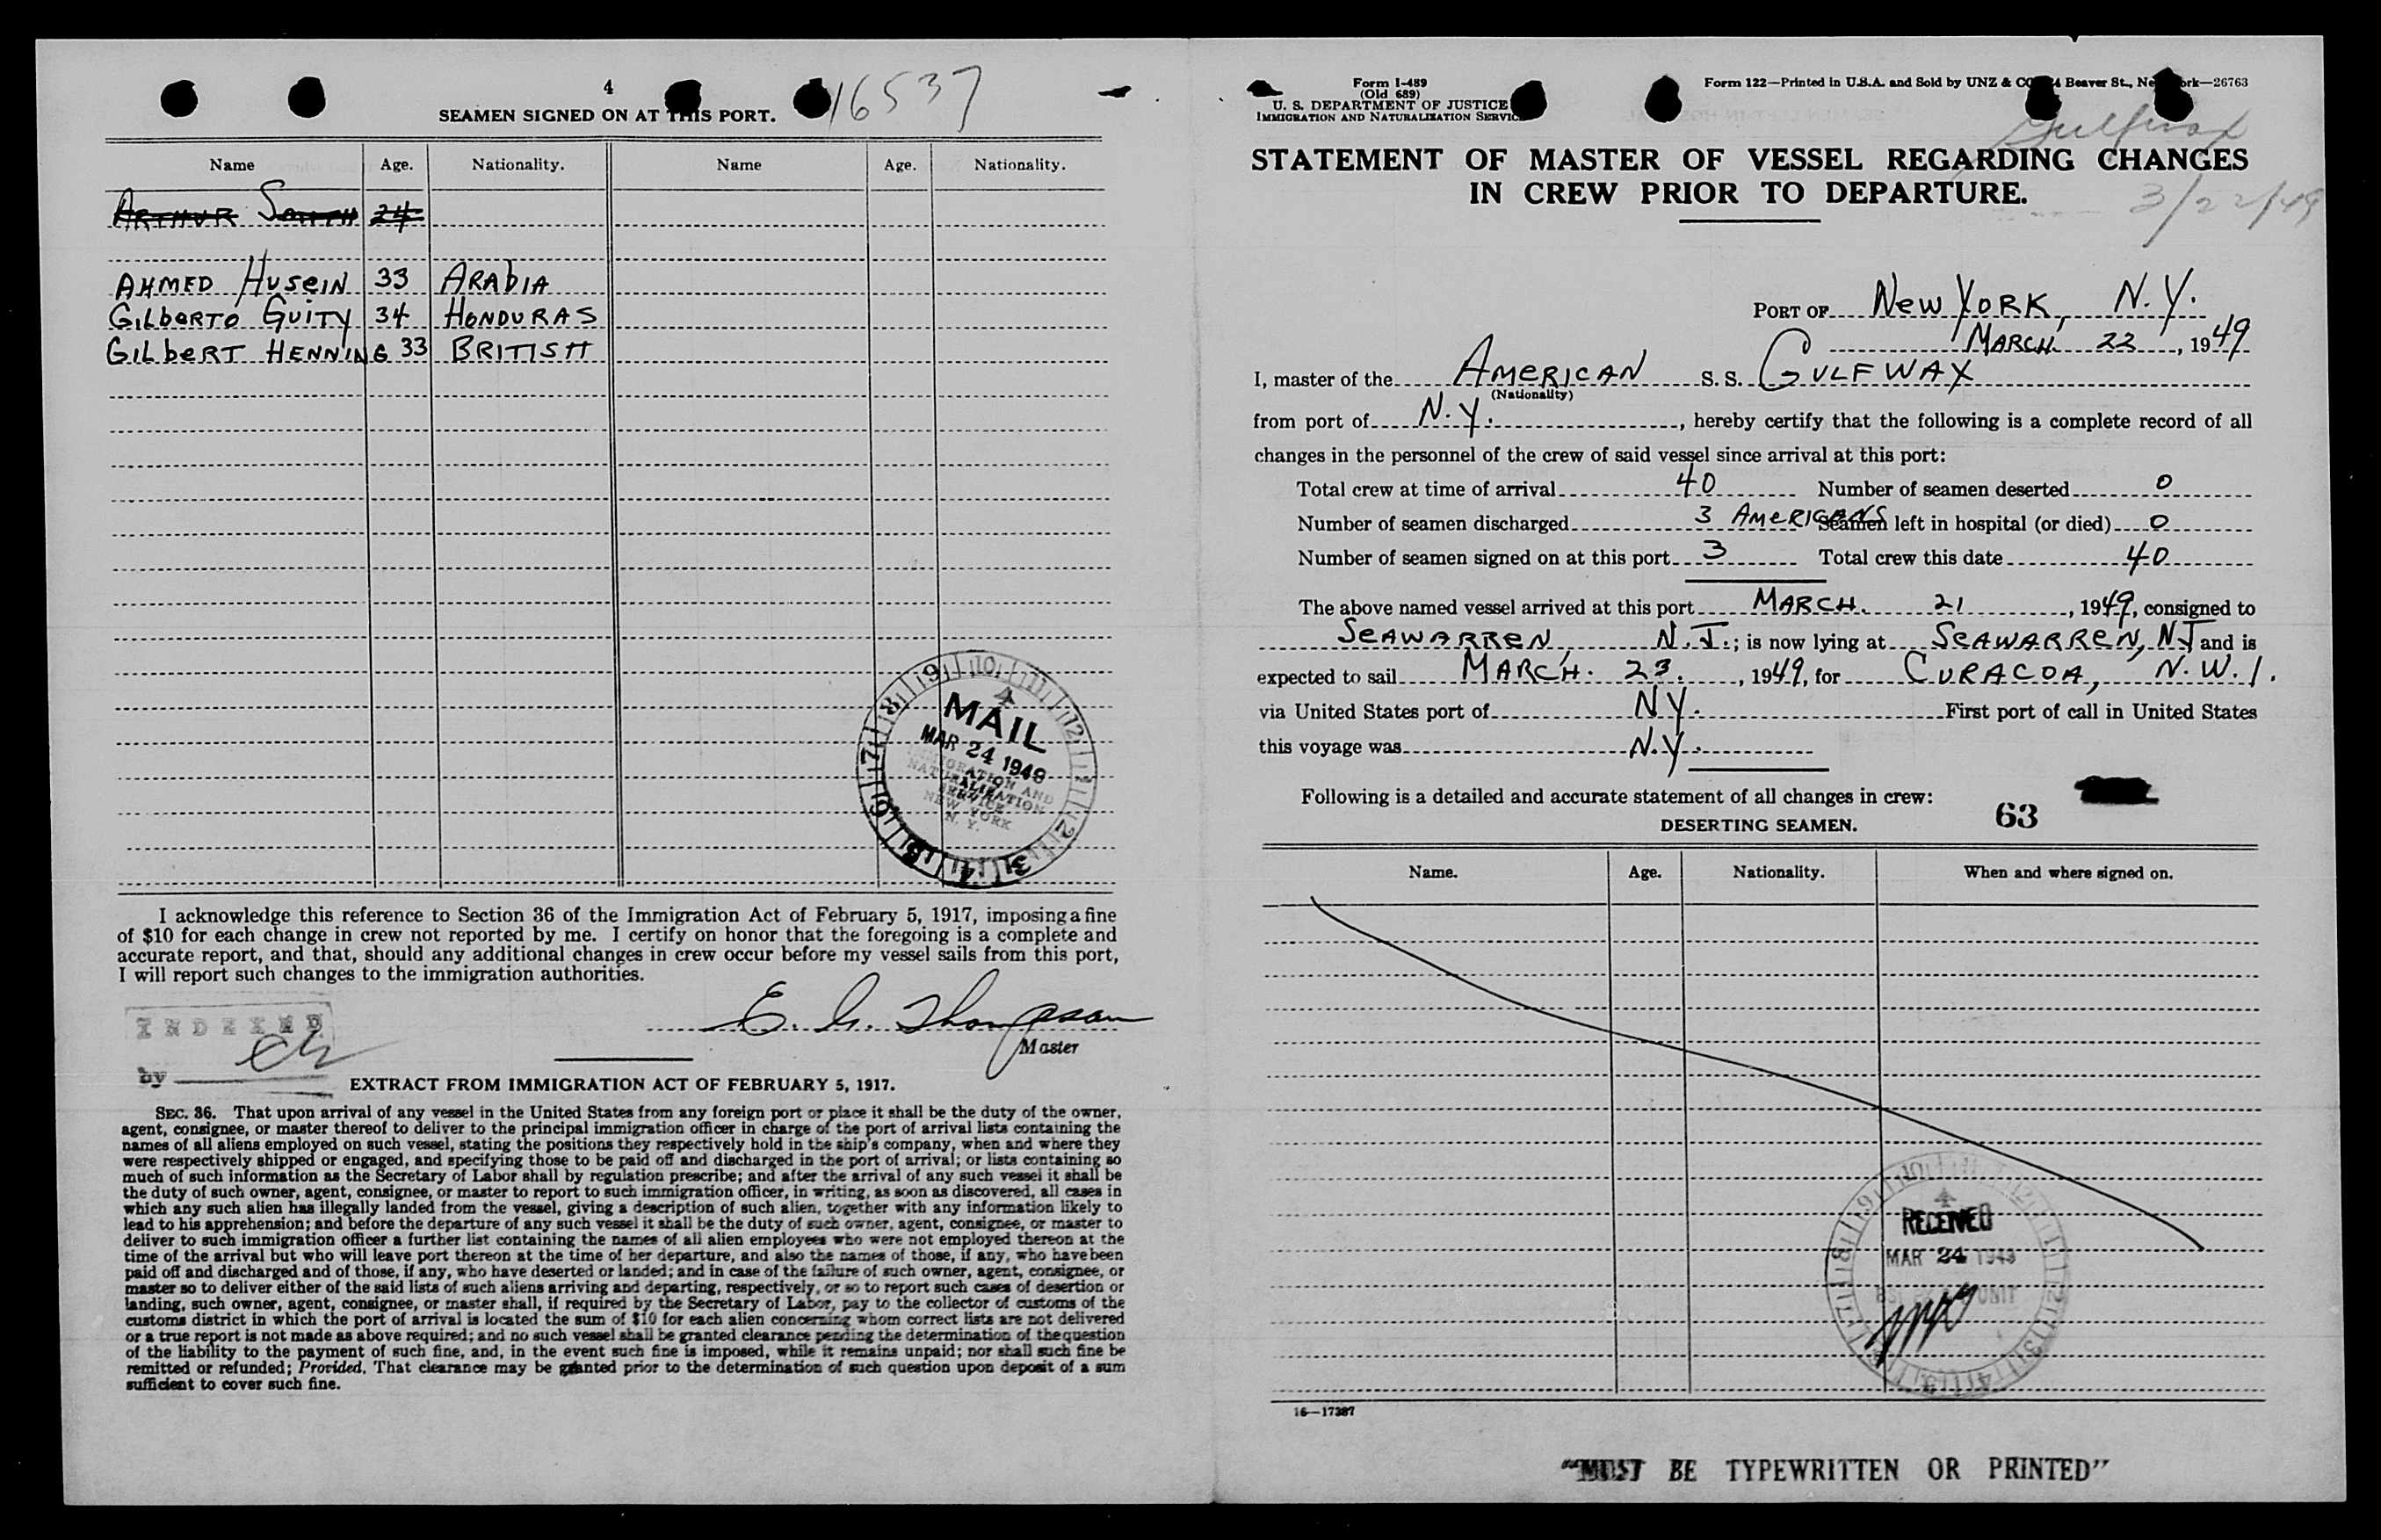 4
16537
SEAMEN SIGNED ON AT THIS PORT.
Name Age. Nationality. Name Age. Nationality.
ARTHUR SMITH 24
AHMED HUSEIN 33 ARABIA
GILBERTO GUITY 34 HONDURAS
GILBERT HENNING 33 BRITISH
MAIL
MAR 24 1949
IMMIGRATION AND
NATURALIZATION
SERVICE
NEW YORK
N. Y.
I acknowledge this reference to Section 36 of the Immigration Act of February 5, 1917, imposing a fine
of $10 for each change in crew not reported by me. I certify on honor that the foregoing is a complete and
accurate report, and that, should any additional changes in crew occur before my vessel sails from this port,
I will report such changes to the immigration authorities.
INDEXED
by
E. G. Thompson
Master
EXTRACT FROM IMMIGRATION ACT OF FEBRUARY 5, 1917.
SEC. 36. That upon arrival of any vessel in the United States from any foreign port or place it shall be the duty of the owner,
agent, consignee, or master thereof to deliver to the principal immigration officer in charge of the port of arrival lists containing the
names of all aliens employed on such vessel, stating the positions they respectively hold in the ship's company, when and where they
were respectively shipped or engaged, and specifying those to be paid off and discharged in the port of arrival; or lists containing so
much of such information as the Secretary of Labor shall by regulation prescribe; and after the arrival of any such vessel it shall be
the duty of such owner, agent, consignee, or master to report to such immigration officer, in writing, as soon as discovered, all cases in
which any such alien has illegally landed from the vessel, giving a description of such alien, together with any information likely to
lead to his apprehension; and before the departure of any such vessel it shall be the duty of such owner, agent, consignee, or master to
deliver to such immigration officer a further list containing the names of all alien employees who were not employed thereon at the
time of the arrival but who will leave port thereon at the time of her departure, and also the names of those, if any, who have been
paid off and discharged and of those, if any, who have deserted or landed; and in case of the failure of such owner, agent, consignee, or
master so to deliver either of the said lists of such aliens arriving and departing, respectively, or so to report such cases of desertion or
landing, such owner, agent, consignee, or master shall, if required by the Secretary of Labor, pay to the collector of customs of the
customs district in which the port of arrival is located the sum of $10 for each alien concerning whom correct lists are not delivered
or a true report is not made as above required; and no such vessel shall be granted clearance pending the determination of the question
of the liability to the payment of such fine, and, in the event such fine is imposed, while it remains unpaid; nor shall such fine be
remitted or refunded; Provided, That clearance may be granted prior to the determination of such question upon deposit of a sum
sufficient to cover such fine.
Form I-489
(Old 689)
U. S. DEPARTMENT OF JUSTICE
IMMIGRATION AND NATURALIZATION SERVICE
Form 122—Printed in U.S.A. and Sold by UNZ & CO., 24 Beaver St., New York—26763
Gulfwax
STATEMENT OF MASTER OF VESSEL REGARDING CHANGES
IN CREW PRIOR TO DEPARTURE.
3/22/49
PORT OF NEW YORK, N.Y.
MARCH 22, 1949
I, master of the AMERICAN S. S. GULFWAX
(Nationality)
from port of N.Y., hereby certify that the following is a complete record of all
changes in the personnel of the crew of said vessel since arrival at this port:
Total crew at time of arrival 40 Number of seamen deserted 0
Number of seamen discharged 3 AMERICANS Seamen left in hospital (or died) 0
Number of seamen signed on at this port 3 Total crew this date 40
The above named vessel arrived at this port MARCH. 21, 1949, consigned to
SEAWARREN, N.J.; is now lying at SEAWARREN, NJ and is
expected to sail MARCH. 23., 1949, for CURACOA, N.W.I.
via United States port of NY. First port of call in United States
this voyage was N.Y.
Following is a detailed and accurate statement of all changes in crew:
63
DESERTING SEAMEN.
Name. Age. Nationality. When and where signed on.
RECEIVED
MAR 24 1949
UNIT
16—17387
"MUST BE TYPEWRITTEN OR PRINTED"